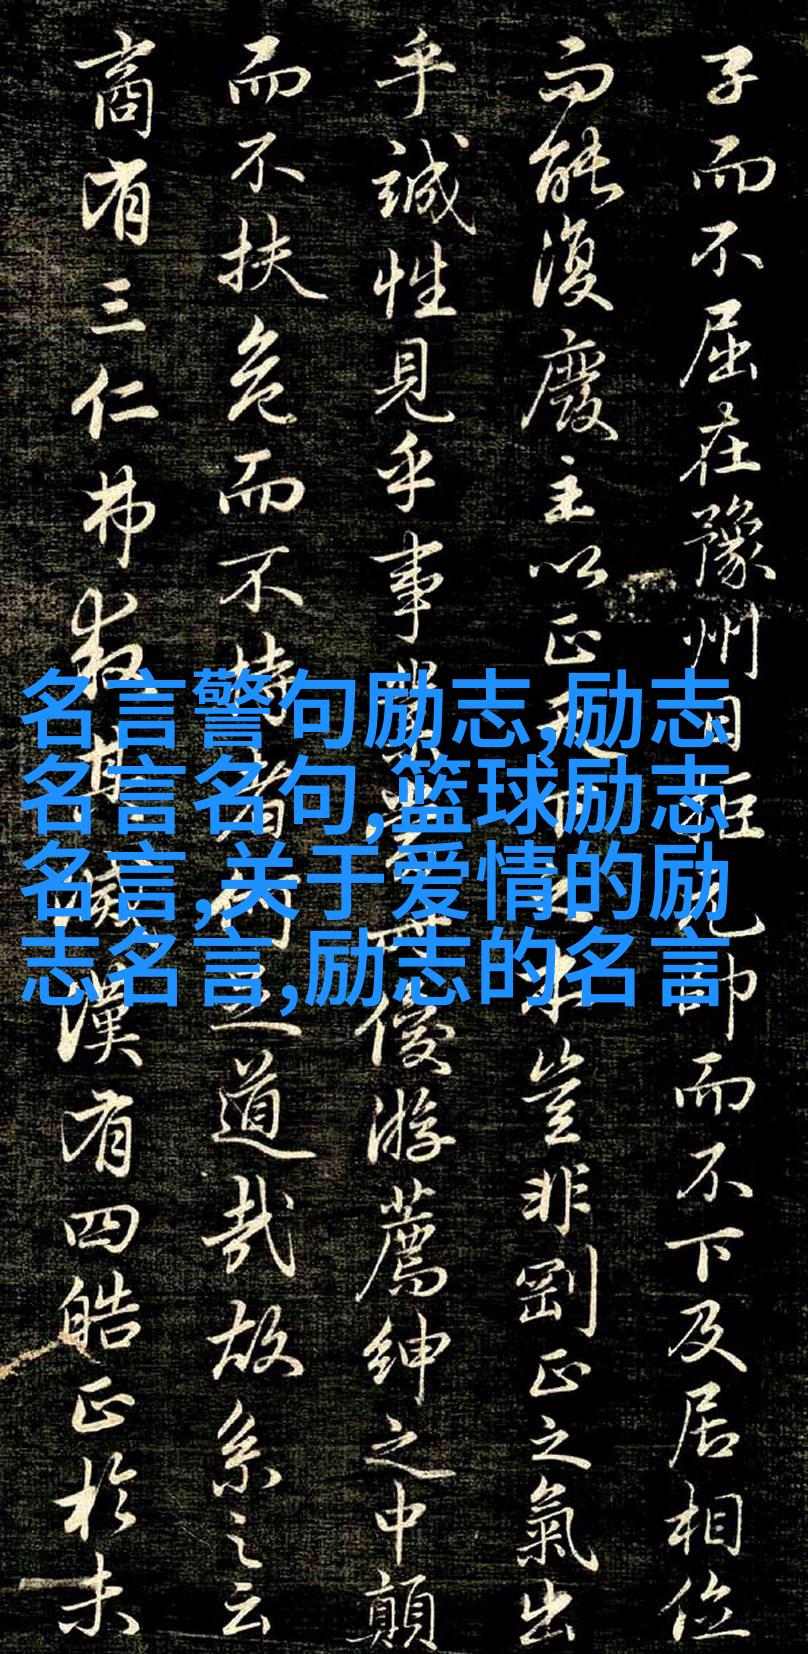 子而不屈在豫州日拒元帥而不下及居相位
而能復廢主以正天下之本豈非剛正之氣出
乎誠性見乎事業當時而優游薦紳之中顛
而不扶危而不持者何足道哉故系之云
商有三仁弗救其滅漢有四皓正於未
名言警句励志,励志
名言名句,篮球励志
名言,关于爱情的励
志名言,励志的名言